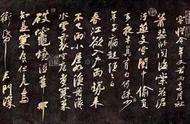 今年又苦雨兩月秋
蕭瑟臥聞海棠花泥
污燕支雪闇中偷負
年子病起頭已白
春江欲入戶雨勢來
不已雨小屋如漁舟濛濛
水雲裏空庖煮寒菜
破竈燒濕葦那
知是寒食但見烏
銜帋 君門深